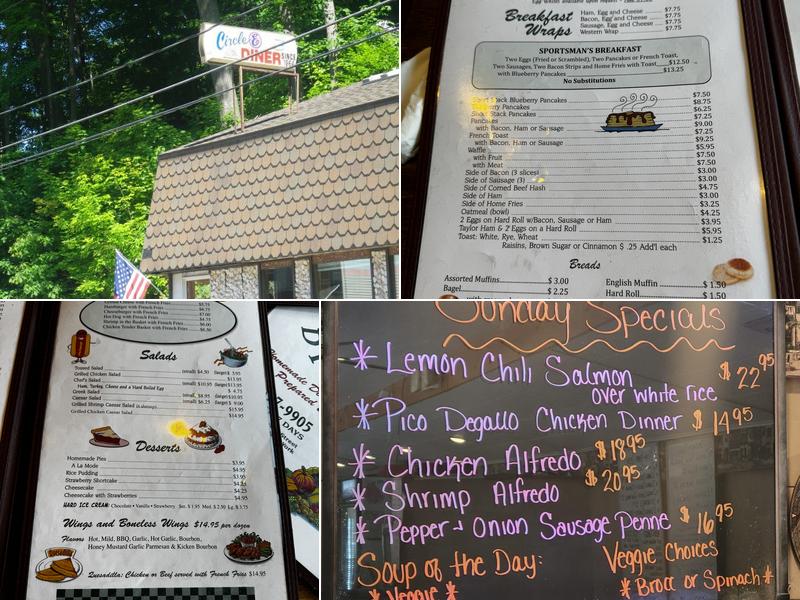 Circle E
DINER
SINCE
Breakfast
Wraps
Ham, Egg and Cheese $7.75
Bacon, Egg and Cheese $7.75
Sausage, Egg and Cheese $7.75
Western Wrap $7.75
SPORTSMAN'S BREAKFAST
Two Eggs (Fried or Scrambled), Two Pancakes or French Toast,
Two Sausages, Two Bacon Strips and Home Fries with Toast $12.50
with Blueberry Pancakes $13.25
No Substitutions
Short Stack Blueberry Pancakes $7.50
Pancakes $8.75
Short Stack Pancakes $6.25
Pancakes $7.25
with Bacon, Ham or Sausage $9.00
French Toast $7.25
with Bacon, Ham or Sausage $9.25
Waffle $5.95
with Fruit $7.50
with Meat $7.50
Side of Bacon (3 slices) $3.00
Side of Sausage (3) $3.00
Side of Corned Beef Hash $4.75
Side of Ham $3.00
Side of Home Fries $3.25
Oatmeal (bowl) $4.25
2 Eggs on Hard Roll w/Bacon, Sausage or Ham $3.95
Taylor Ham & 2 Eggs on a Hard Roll $5.95
Toast: White, Rye, Wheat $1.25
Raisins, Brown Sugar or Cinnamon $ .25 Add'l each
Breads
Assorted Muffins $ 3.00
Bagel $ 2.25
English Muffin $ 1.50
Hard Roll $ 1.50
Hamburger with French Fries
Cheeseburger with French Fries
Hot Dog with French Fries
Shrimp in the Basket with French Fries
Chicken Tender Basket with French Fries
Salads
Tossed Salad (small) $4.50 (large) $ 5.95
Grilled Chicken Salad $13.95
Chef's Salad (small) $10.95 (large) $13.95
Ham, Turkey, Cheese and a Hard Boiled Egg
Greek Salad
Caesar Salad
Grilled Shrimp Caesar Salad $15.95
Grilled Chicken Caesar Salad $14.95
Desserts
Homemade Pies $3.95
A La Mode $4.95
Rice Pudding
Strawberry Shortcake
Cheesecake $4.25
Cheesecake with Strawberries $4.95
HARD ICE CREAM: Chocolate • Vanilla • Strawberry Sm. $ 1.95 Med. $ 2.50 Lg. $ 3.75
Wings and Boneless Wings $14.95 per dozen
Flavors Hot, Mild, BBQ, Garlic, Hot Garlic, Bourbon,
Honey Mustard Garlic Parmesan & Kicken Bourbon
Quesadilla: Chicken or Beef served with French Fries $14.95
7-9905
DAYS
Street
York
Sunday Specials
* Lemon Chili Salmon
over white rice $22.95
* Pico Degallo Chicken Dinner $14.95
* Chicken Alfredo $18.95
* Shrimp Alfredo $20.95
* Pepper & Onion Sausage Penne $16.95
Soup of the Day:
* Veggie *
Veggie Choices
* Brocc or Spinach *